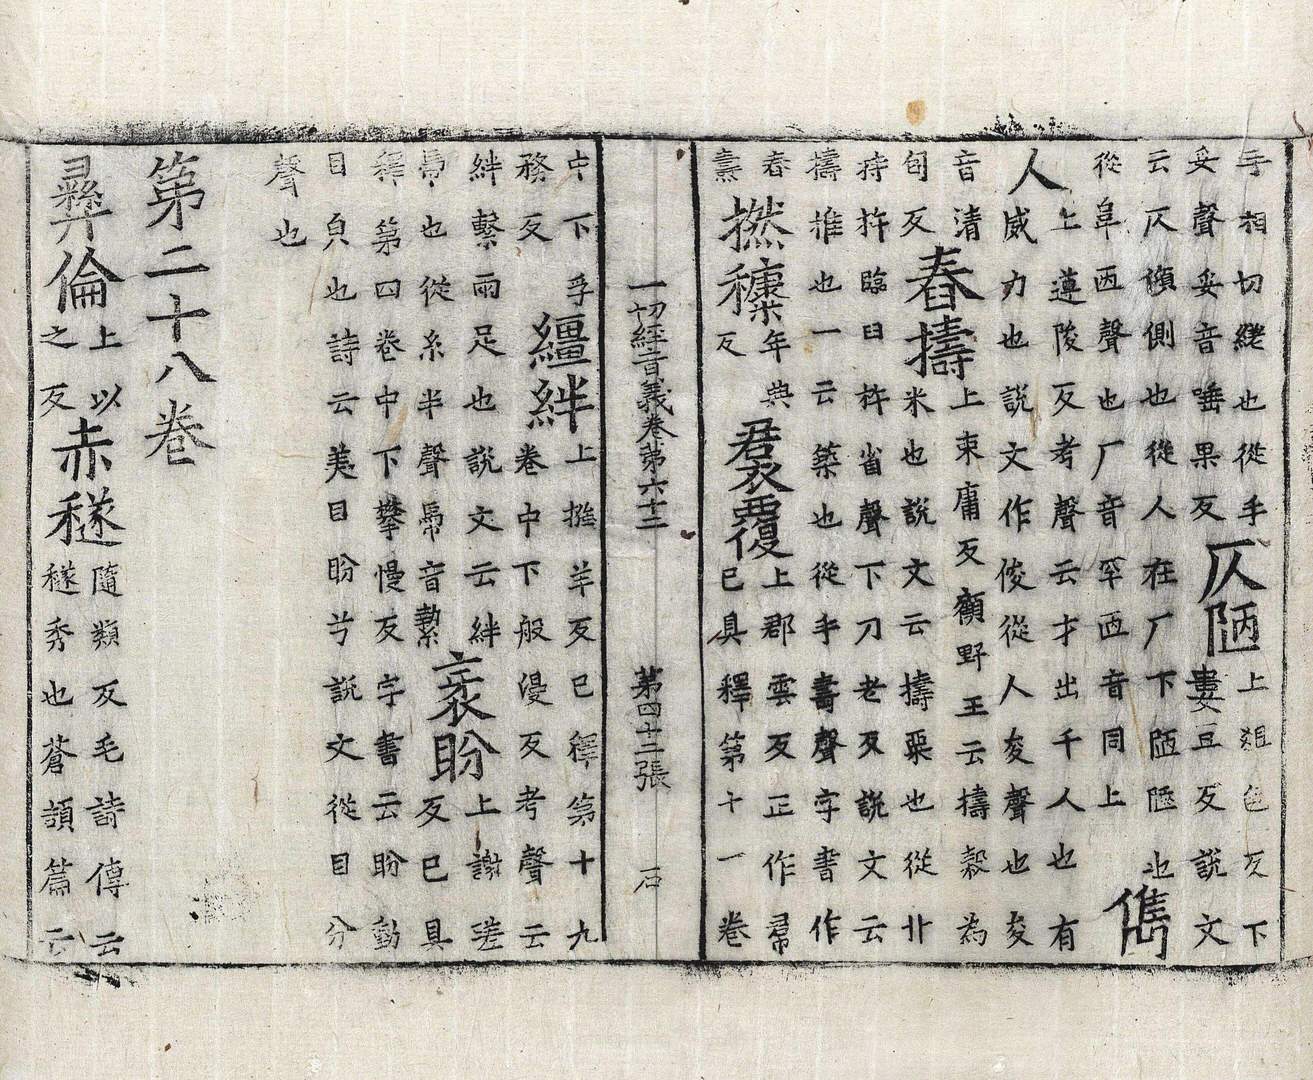 手相切縷也從手
妥聲妥音唾果反
仄陋
上阻色反下
婁豆反說文
云仄傾側也從人在厂下陋陋也
從阜㔷聲也厂音罕㔷音同上
儁
人
上遵陵反考聲云才出千人也有
威力也說文作俊從人夋聲也夋
音清
旬反
舂擣
上束庸反顧野王云擣穀為
米也說文云擣粟也從廾
持杵臨臼杵省聲下刀老反說文云
擣推也一云築也從手壽聲字書作
舂
燾
撚穅
年典
反
裠覆
上郡雲反正作帬
已具釋第十一卷
一切經音義卷第六十二 第四十二張 石
中下孚
務反
繮絆
上擔羊反已釋第十九
卷中下般漫反考聲云
絆繫兩足也說文云絆
馬也從糸半聲馬音縶
衺盼
上謝嗟
反已具
釋第四卷中下攀慢反字書云盼動
目皃也詩云美目盼兮說文從目分
聲也
第二十八卷
彝倫
上以
之反
赤穟
隨類反毛詩傳云
穟秀也蒼頡篇云